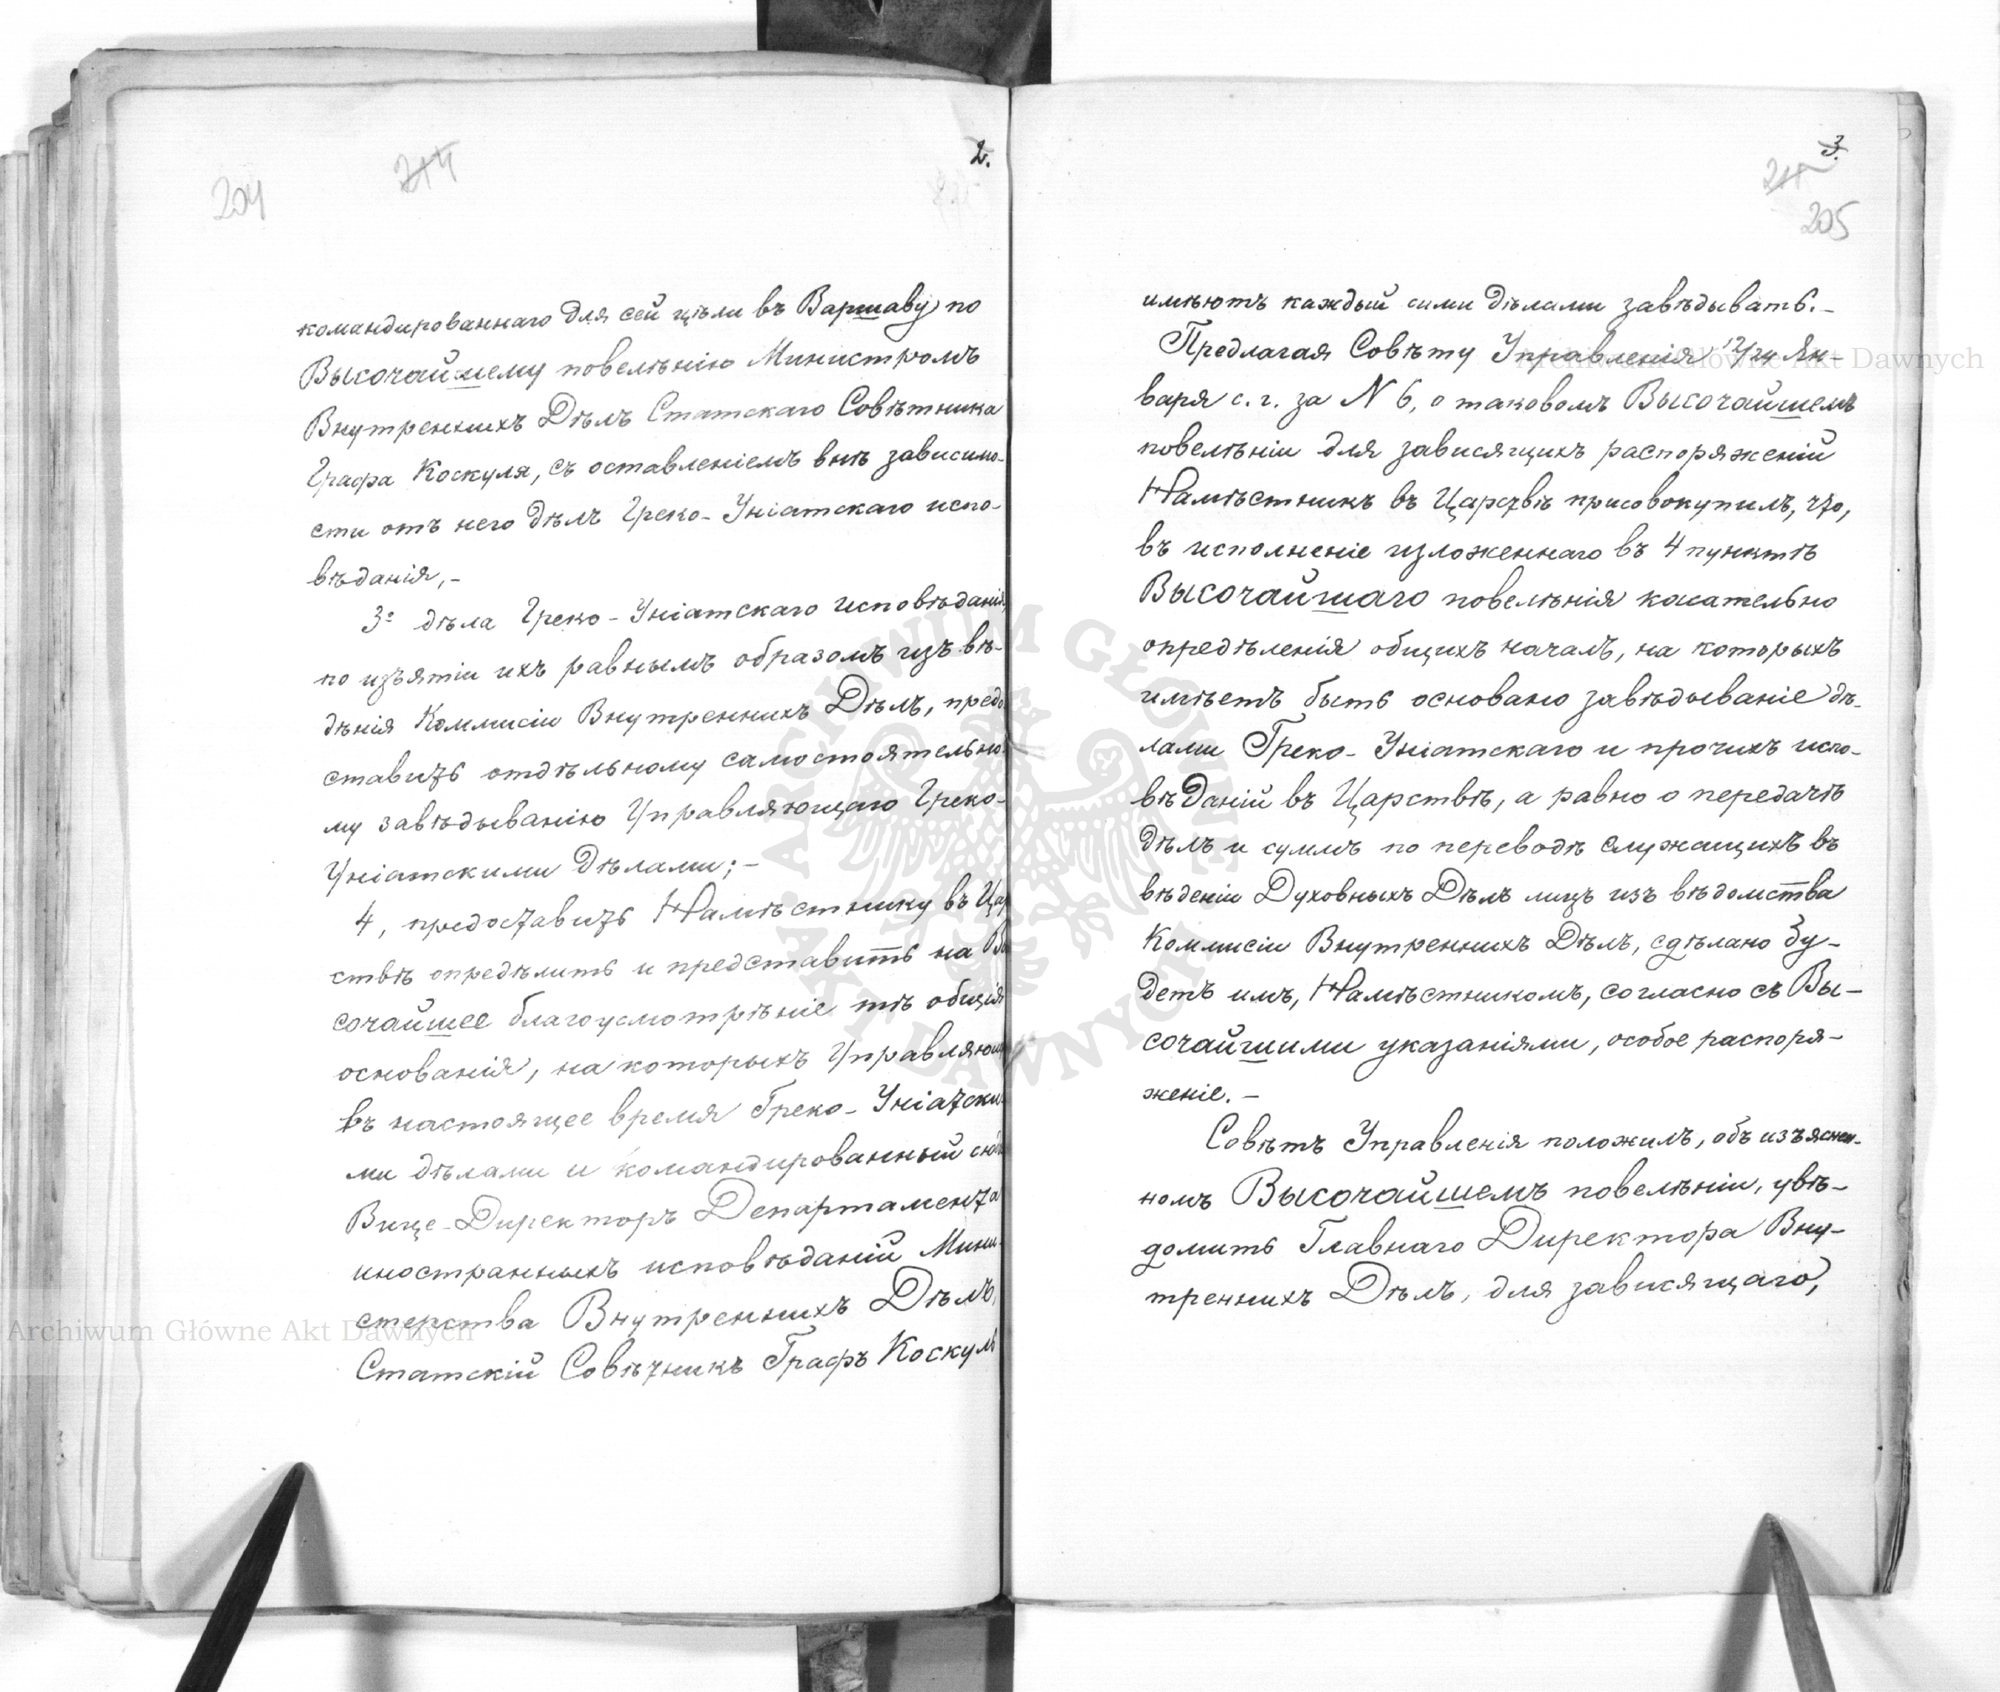 2.
204
214
командированнаго для сей цѣли въ Варшаву по
Высочайшему повелѣнію Министромъ
Внутреннихъ Дѣлъ Статскаго Совѣтника
Графа Коскуля, съ оставленіемъ внѣ зависимо-
сти отъ него дѣлъ Греко-Уніатскаго испо-
вѣданія,-
3е дѣла Греко-Уніатскаго исповѣданія,
по изъятіи ихъ равнымъ образомъ изъ вѣ-
дѣнія Коммисіи Внутреннихъ Дѣлъ, предо
ставить отдѣльному самостоятельно
му завѣдыванію Управляющаго Греко-
Уніатскими Дѣлами;-
4, предоставить Намѣстнику въ Цар
ствѣ опредѣлить и представить на Вы
сочайшее благоусмотрѣніе тѣ общія
основанія, на которыхъ Управляющ
въ настоящее время Греко-Уніатски-
ми дѣлами и командированный сюда
Вице-Директоръ Департамента
иностранныхъ исповѣданій Мини-
стерства Внутреннихъ Дѣлъ,
Статскій Совѣтникъ Графъ Коскуль
3.
205
имѣютъ каждый сими дѣлами завѣдывать.-
Предлагая Совѣту Управленія 12/24 Ян-
варя с. г. за N 6, о таковомъ Высочайшемъ
повелѣніи для зависящихъ распоряженій
Намѣстникъ въ Царствѣ присовокупилъ, что,
въ исполненіе изложеннаго въ 4 пунктѣ
Высочайшаго повелѣнія касательно
опредѣленія общихъ началъ, на которыхъ
имѣетъ быть основано завѣдываніе дѣ-
лами Греко-Уніатскаго и прочихъ испо-
вѣданій въ Царствѣ, а равно о передачѣ
дѣлъ и суммъ по переводѣ служащихъ въ
вѣденіи Духовныхъ Дѣлъ лицъ изъ вѣдомства
Коммисіи Внутреннихъ Дѣлъ, сдѣлано бу-
детъ имъ, Намѣстникомъ, согласно съ Вы-
сочайшими указаніями, особое распоря-
женіе.-
Совѣтъ Управленія положилъ, объ изъяснен-
номъ Высочайшемъ повелѣніи, увѣ-
домить Главнаго Директора Вну-
треннихъ Дѣлъ, для зависящаго,
Archiwum Główne Akt Dawnych
Archiwum Główne Akt Dawnych
ARCHIWUM GŁÓWNE AKT DAWNYCH